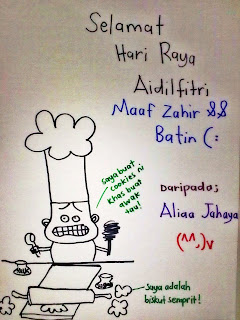 Selamat
Hari Raya
Aidilfitri
Maaf Zahir &&
Batin (:
Saya buat
cookies ni
khas buat
awak
tau!
Daripada;
Aliaa Jahaya
(^^,)v
Saya adalah
biskut semprit!